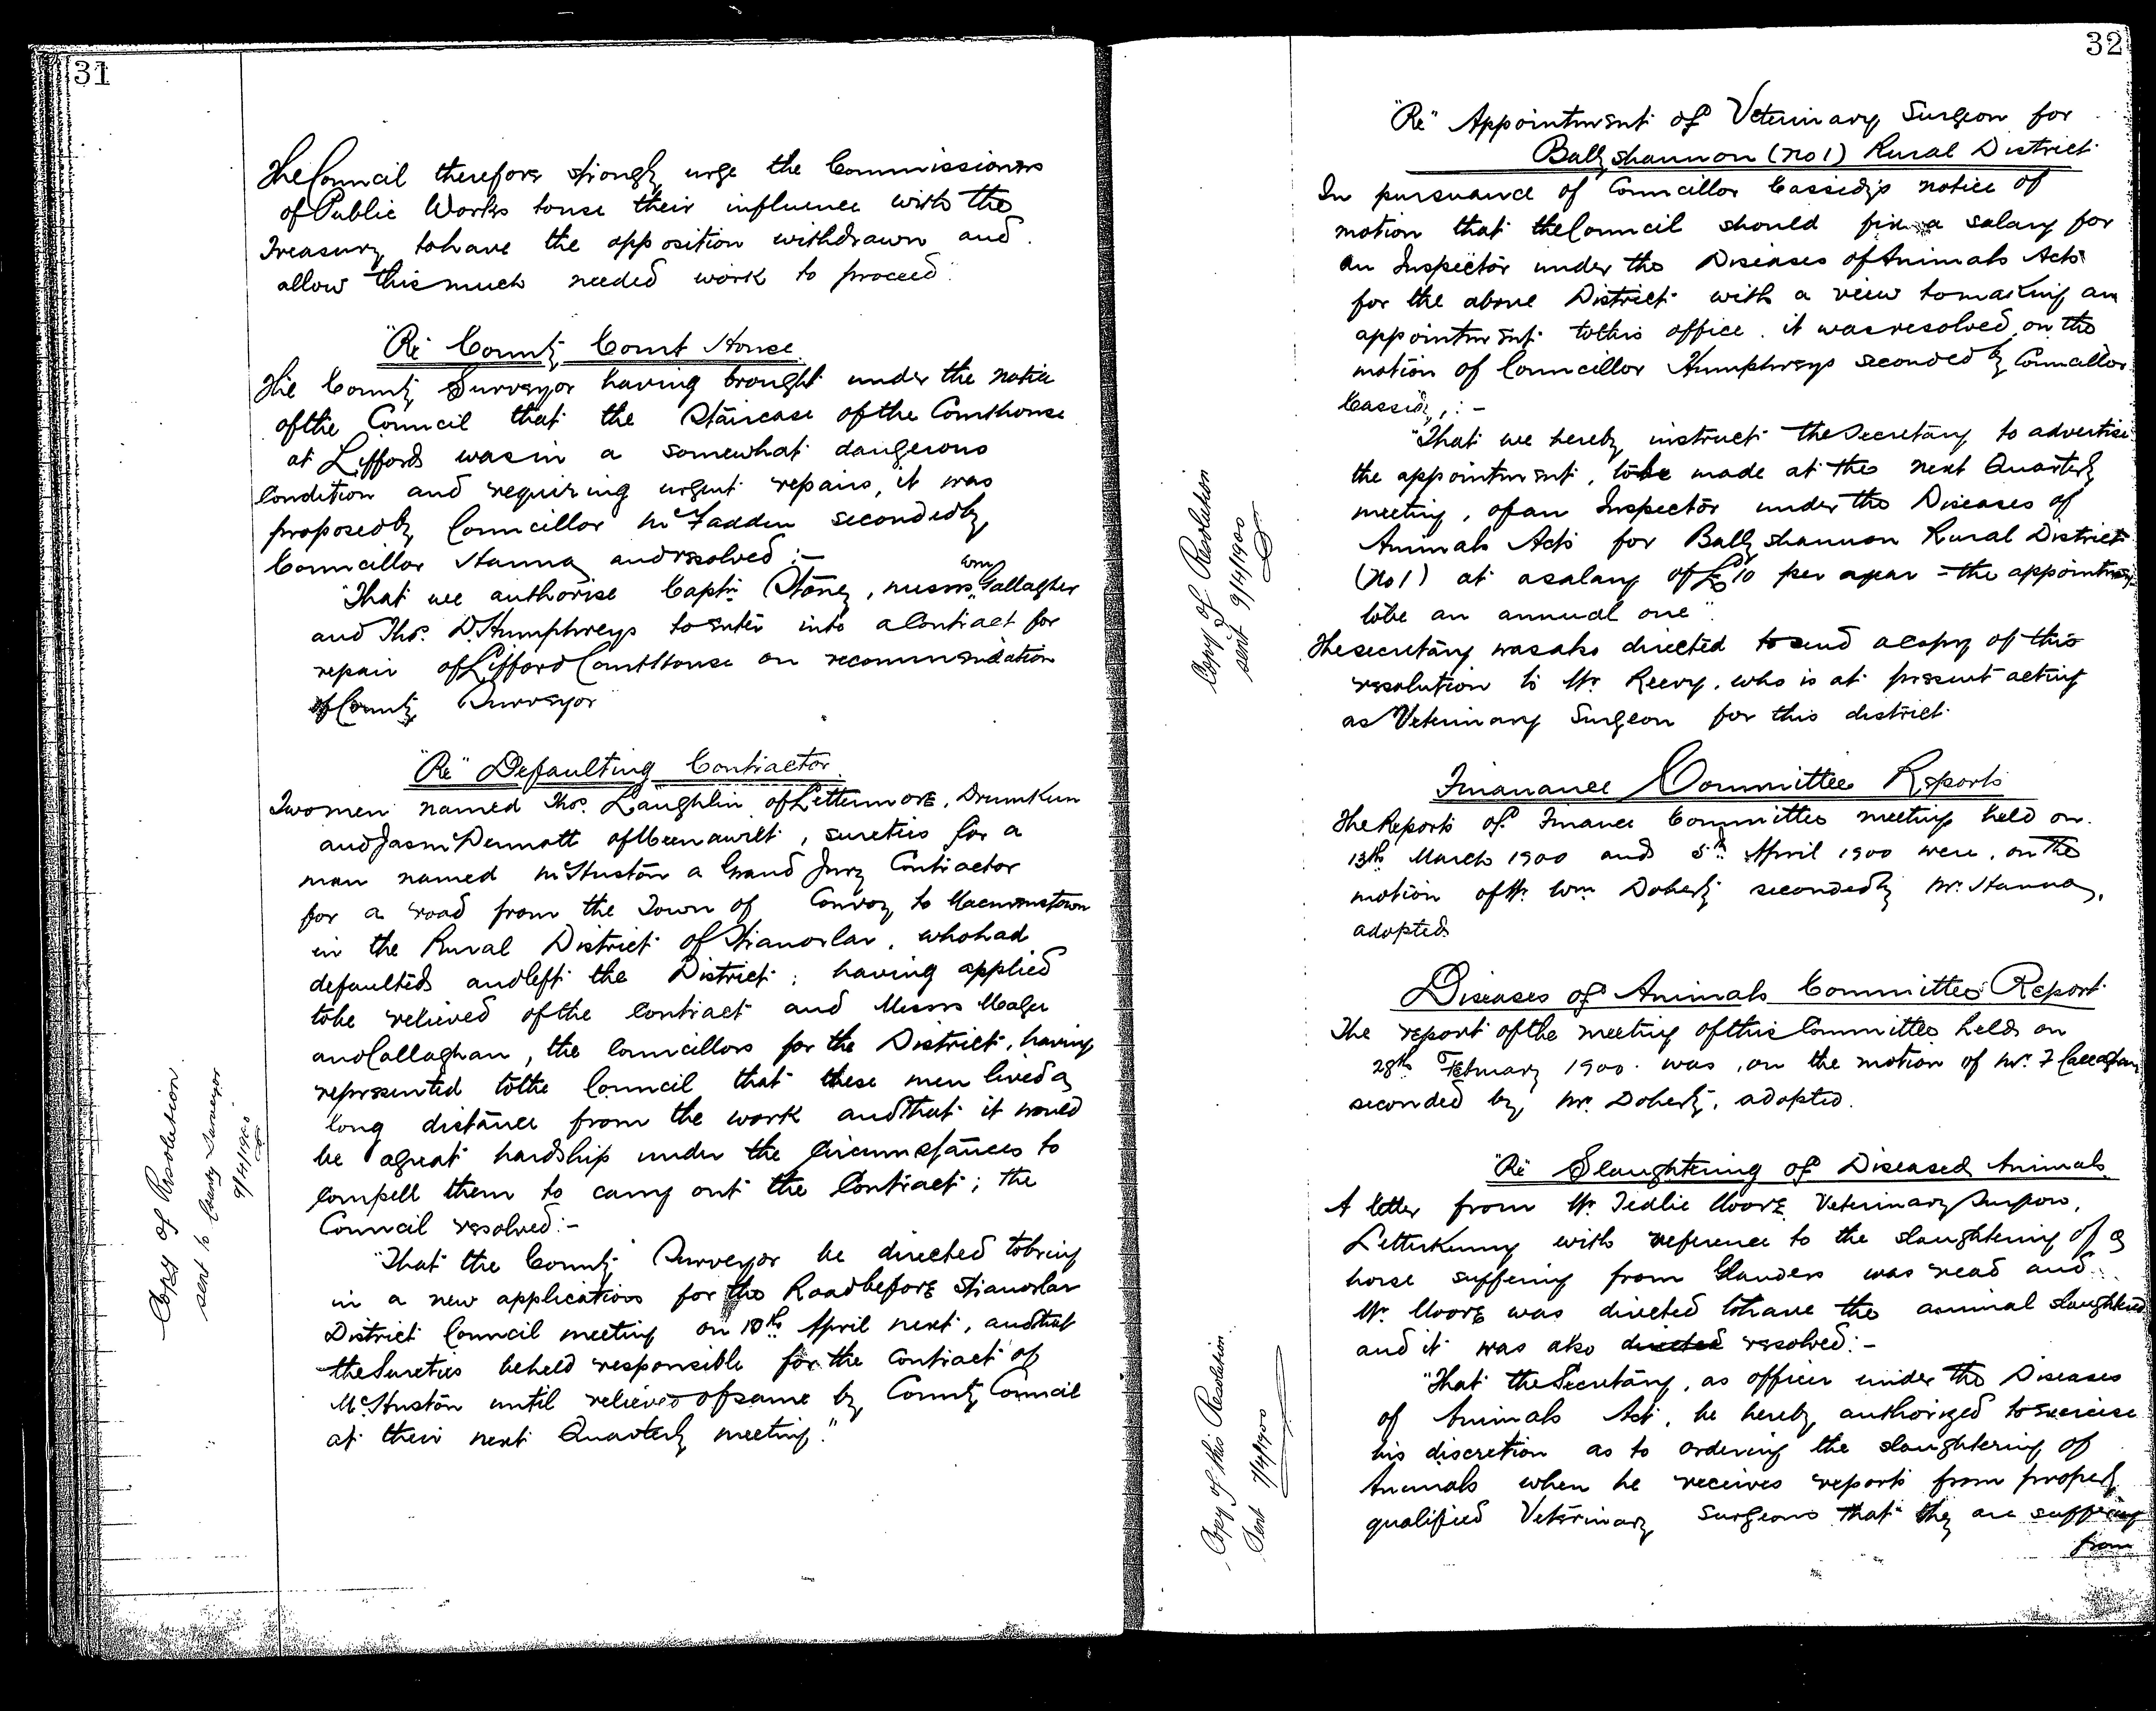 31
The Council therefore strongly urge the Commissioners
of Public Works to use their influence with the
Treasury to have the opposition withdrawn and
allow this much needed work to proceed."
"Re" County Court House
The County Surveyor having brought under the notice
of the Council that the Staircase of the Courthouse
at Lifford was in a somewhat dangerous
Condition and requiring urgent repairs, it was
proposed by Councillor McFadden seconded by
Councillor Hanna and resolved :-
"That we authorise Captn Stoney, Messrs Wm Gallagher
and Thos. D. Humphreys to enter into a Contract for
repair of Lifford Court House on recommendation
of County Surveyor"
"Re" Defaulting Contractor
Two men named Thos. Laughlin of Lettermore, Drumkeen
and Jas McDermott of , sureties for a
man named McHuston a Grand Jury Contractor
for a road from the Town of Convoy to
in the Rural District of Stranorlar, who had
defaulted and left the District; having applied
to be relieved of the Contract and Messrs
and Callaghan, the Councillors for the District, having
represented to the Council that these men lived a
long distance from the work and that it would
be a great hardship under the circumstances to
compell them to carry out the Contract; the
Council resolved:-
"That the County Surveyor be directed to bring
in a new application for the Road before Stranorlar
District Council meeting on 18th April next, and that
the Sureties be held responsible for the Contract of
McHuston until relieved of same by County Council
at their next Quarterly meeting."
Copy of Resolution
sent to County Surveyor
9/4/1900
32
"Re" Appointment of Veterinary Surgeon for
Ballyshannon (No 1) Rural District
In pursuance of Councillor Cassidy's notice of
motion that the Council should fix a salary for
an Inspector under the Diseases of Animals Acts
for the above District with a view to making an
appointment to this office. it was resolved, on the
motion of Councillor Humphreys seconded by Councillor
Cassidy, :-
"That we hereby instruct the Secretary to advertise
the appointment, to be made at the next Quarterly
meeting, of an Inspector under the Diseases of
Animals Acts for Ballyshannon Rural District
(No 1) at a salary of £10 per year - the appointment
to be an annual one".
The secretary was also directed to send a copy of this
resolution to Mr. Reevy, who is at present acting
as Veterinary Surgeon for this district
Copy of Resolution
sent 9/4/1900
Finanance Committee Reports
The Reports of Finance Committee meetings held on
13th March 1900 and 5th April 1900 were, on the
motion of Mr. Wm Doherty seconded by Mr. Hanna,
adopted
Diseases of Animals Committee Report
The report of the meeting of this Committee held on
28th February 1900. was, on the motion of Mr. F Callaghan
seconded by Mr. Doherty, adopted.
"Re" Slaughtering of Diseased Animals
A letter from Mr. Tedlie Moore Veterinary Surgeon,
Letterkenny with reference to the slaughtering of a
horse suffering from Glanders was read and
Mr. Moore was directed to have the animal slaughtered
and it was also directed resolved:-
"That the Secretary, as officer under the Diseases
of Animals Act, be hereby authorized to exercise
his discretion as to ordering the slaughtering of
Animals when he receives reports from properly
qualified Veterinary Surgeons that they are suffering
from
Copy of this Resolution
Sent 7/4/1900